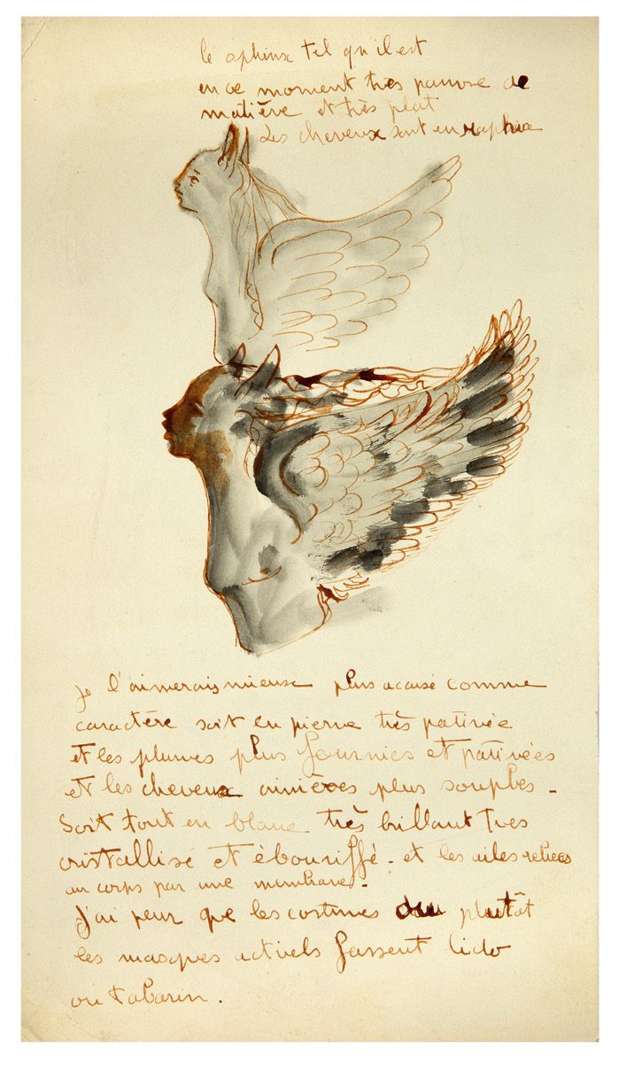 le sphinx tel qu'il est
en ce moment très pauvre de
matière et très plat
Les cheveux sont en raphia
Je l'aimerais mieux plus accusé comme
caractère soit en pierre très patinée
et les plumes plus fournies et patinées
et les cheveux crinières plus souples -
Soit tout en blanc très brillant Très
cristallisé et ébouriffé - et les ailes reliées
au corps par une membrane -
J'ai peur que les costumes ou plutôt
les masques actuels fassent lido
ou tabarin .